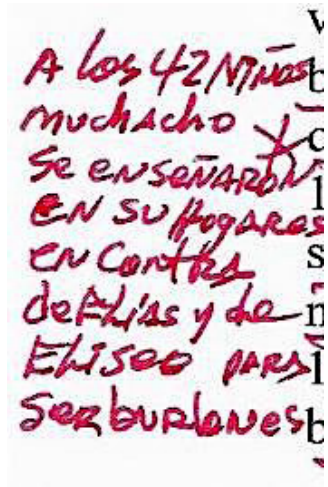 A los 42 Niños
muchacho y
se enseñaron
en su Hogares
en contra
de Elías y de
Eliseo para
ser burlones